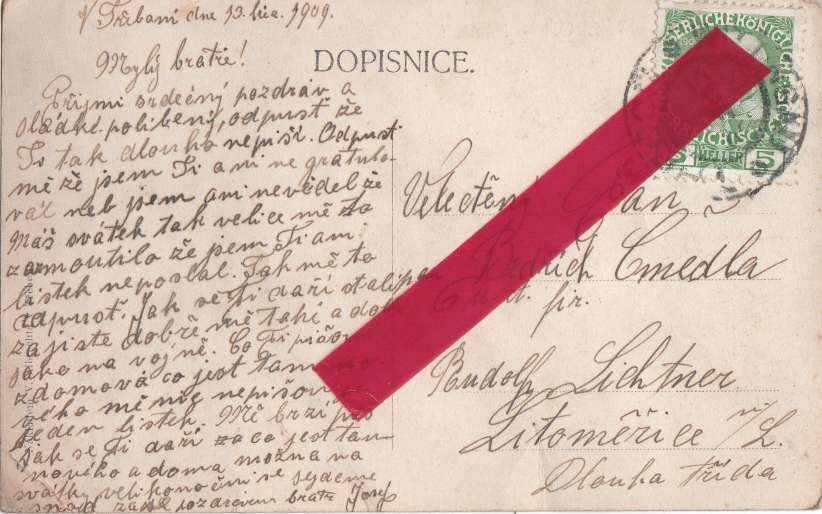 V Třebani dne 13. bře. 1909.
DOPISNICE.
Mylý bratře!
Přijmi srdečný pozdrav a
sladké políbení, odpusť že
Ti tak dlouho nepíši. Odpusti
mě že jsem Ti ani ne gratulo-
val neb jsem ani nevěděl že
Máš svátek tak velice mě to
zarmoutilo že jsem Ti ani
lístek neposlal. Tak mě to
odpusť. Jak se ti daří
zajiste dobře mě také a
jako na vojně. Co Ti píšou
z domova co jest tam no-
vého mě nic nepíšou
jeden lístek. Mě brzi
jak se Ti daří za co jest tam
nového a doma možna na
svátky velikonoční se sejdeme
pozdravem bratr Josef
HELLER 5
Velectěný Pan
Bedřich Cmedla
fir.
Rudolf Lichtner
Litoměřice n/L.
Dlouha třída